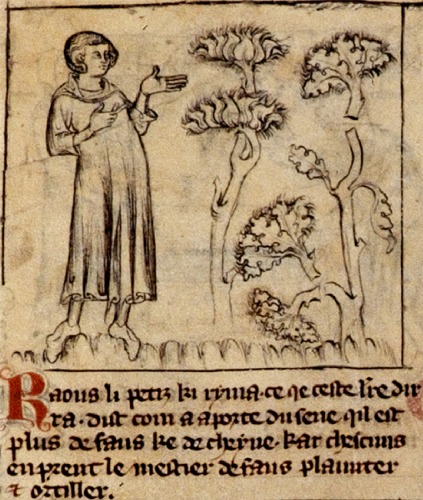 Raous li petiz ki ryma ce qe ceste l're dir
ra. dist com a aporte du sene qil est
plus de faus ke de cheyne. kar chescuns
enprent le mestier de faus plaunter
⁊ ortiller.